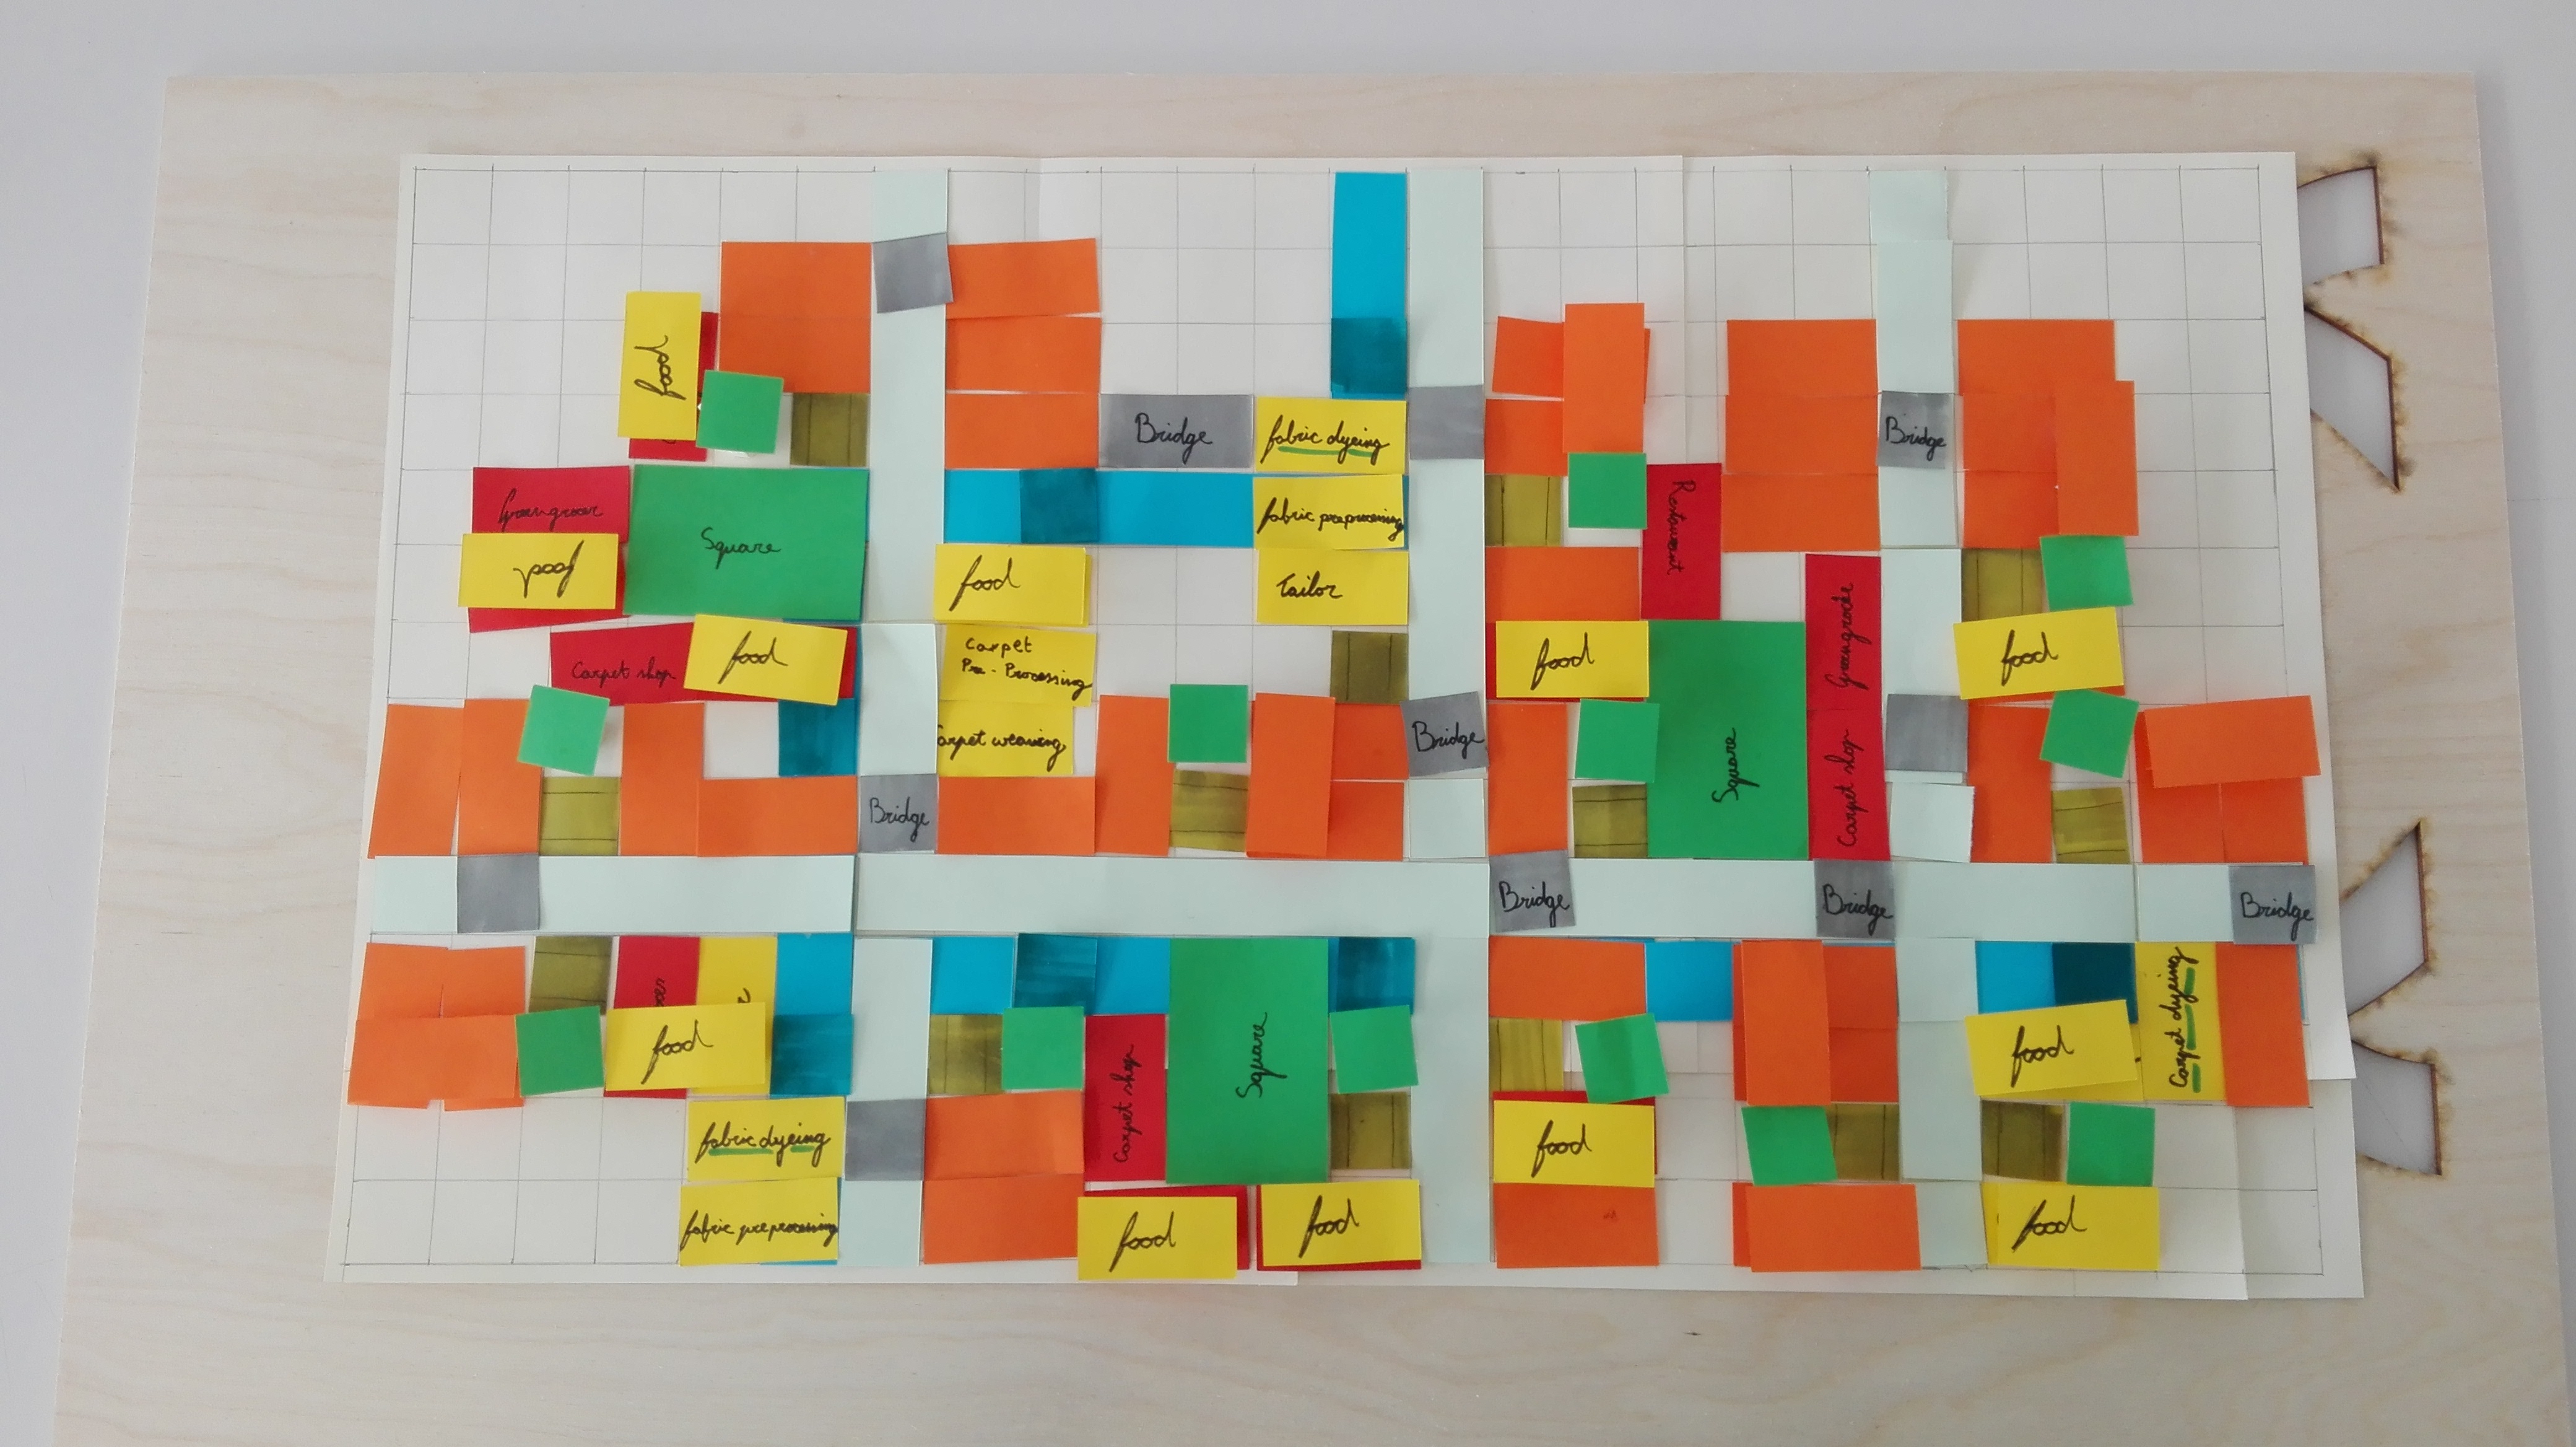 food
Bridge
fabric dyeing
Bridge
Greengrocer
Square
fabric preprocessing
Restaurant
food
food
Tailor
Greengrocer
Carpet shop
food
Carpet
Pre-Processing
food
food
Carpet shop
Square
arpet weaving
Bridge
Bridge
Bridge
Bridge
Bridge
food
Carpet shop
Square
food
Carpet dyeing
fabric dyeing
food
fabric preprocessing
food
food
food